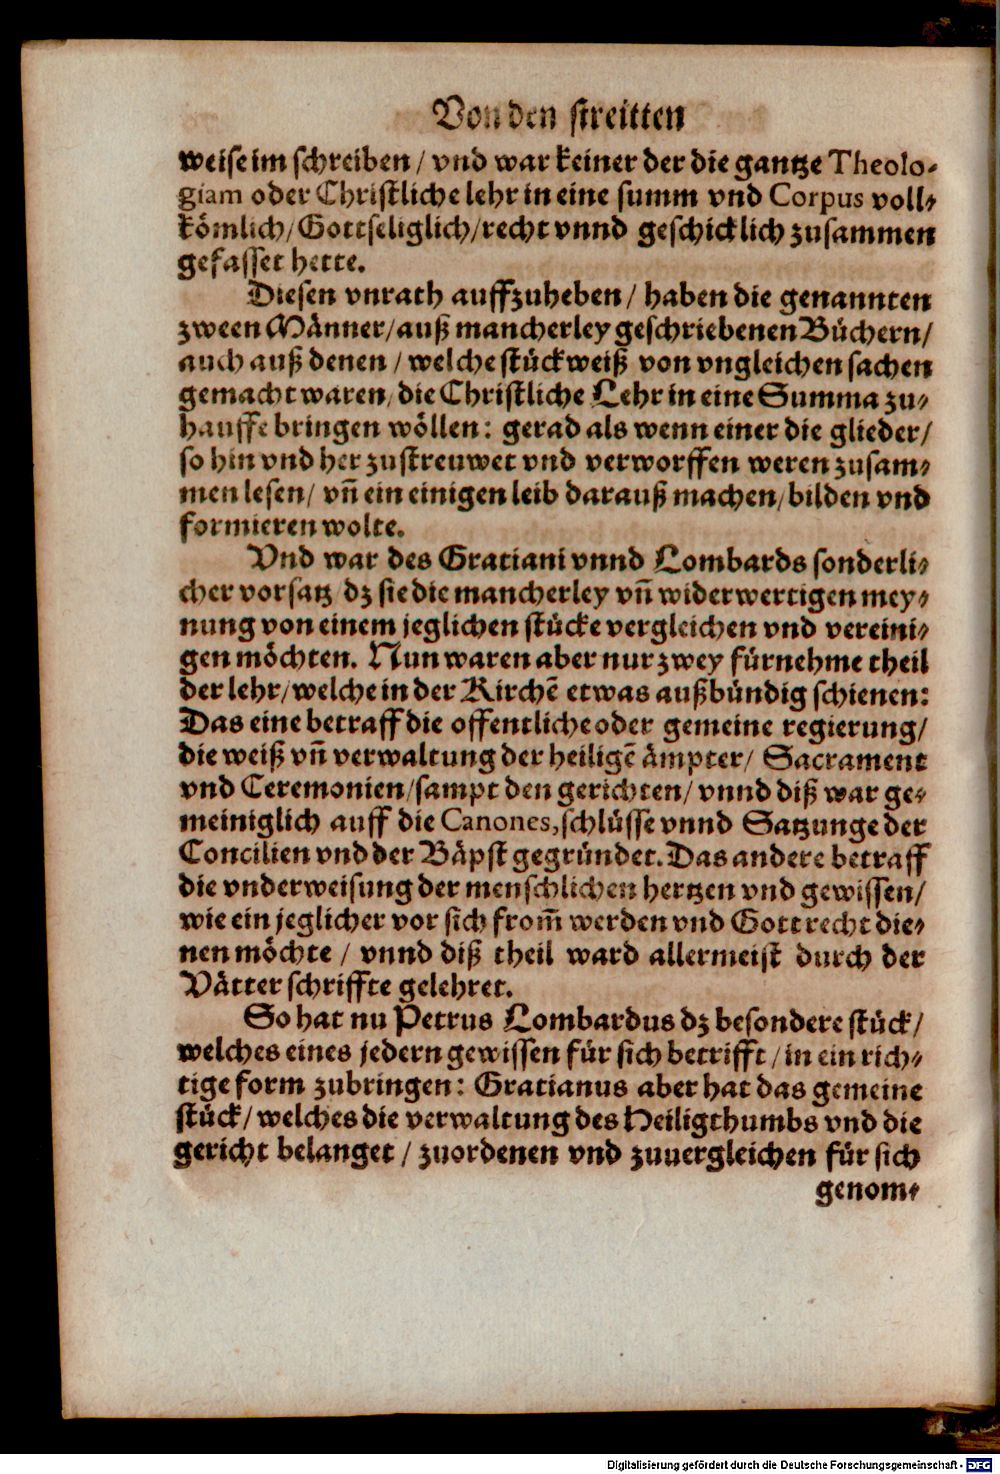 Von den streitten
weise im schreiben / vnd war keiner der die gantze Theolo-
giam oder Christliche lehr in eine summ vnd Corpus voll-
kömlich / Gottseliglich / recht vnnd geschicklich zusammen
gefasset hette.
Diesen vnrath auffzuheben / haben die genannten
zween Männer / auß mancherley geschriebenen Büchern /
auch auß denen / welche stückweiß von vngleichen sachen
gemacht waren / die Christliche Lehr in eine Summa zu-
hauffe bringen wöllen: gerad als wenn einer die glieder /
so hin vnd her zustreuwet vnd verworffen weren zusam-
men lesen / vñ ein einigen leib darauß machen / bilden vnd
formieren wolte.
Vnd war des Gratiani vnnd Lombards sonderli-
cher vorsatz dz sie die mancherley vñ widerwertigen mey-
nung von einem jeglichen stücke vergleichen vnd vereini-
gen möchten. Nun waren aber nur zwey fürnehme theil
der lehr / welche in der Kirchẽ etwas außbündig schienen:
Das eine betraff die offentliche oder gemeine regierung /
die weiß vñ verwaltung der heiligẽ ämpter / Sacrament
vnd Ceremonien / sampt den gerichten / vnnd diß war ge-
meiniglich auff die Canones, schlüsse vnnd Satzunge der
Concilien vnd der Bäpst gegründet. Das andere betraff
die vnderweisung der menschlichen hertzen vnd gewissen /
wie ein jeglicher vor sich from̃ werden vnd Gott recht die-
nen möchte / vnnd diß theil ward allermeist durch der
Vätter schriffte gelehret.
So hat nu Petrus Lombardus dz besondere stück /
welches eines jedern gewissen für sich betrifft / in ein rich-
tige form zubringen: Gratianus aber hat das gemeine
stück / welches die verwaltung des Heiligthumbs vnd die
gericht belanget / zuordenen vnd zuuergleichen für sich
genom-
Digitalisierung gefördert durch die Deutsche Forschungsgemeinschaft - DFG